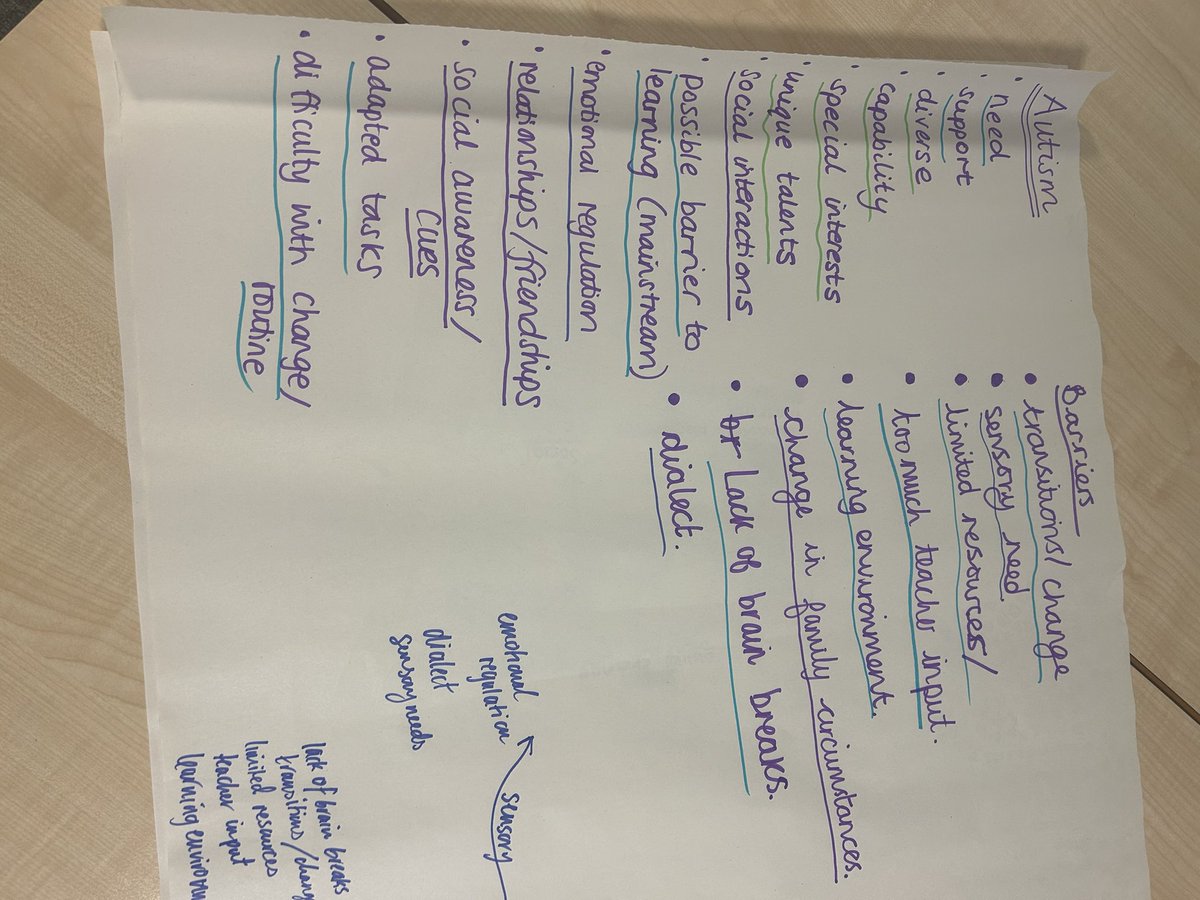 Autism
• need
• support
• diverse
• capability
• special interests
• unique talents
• social interactions
• possible barrier to
learning (mainstream)
• emotional regulation
• relationships/friendships
• social awareness/
cues
• adapted tasks
• difficulty with change/
routine
Barriers
• transitions/change
• sensory need
• limited resources/
• too much teacher input.
• learning environment.
• change in family circumstances.
• br Lack of brain breaks.
• dialect.
sensory
emotional
regulation
dialect
sensory needs
lack of brain breaks
transitions/chang
limited resources
teacher input
learning environm